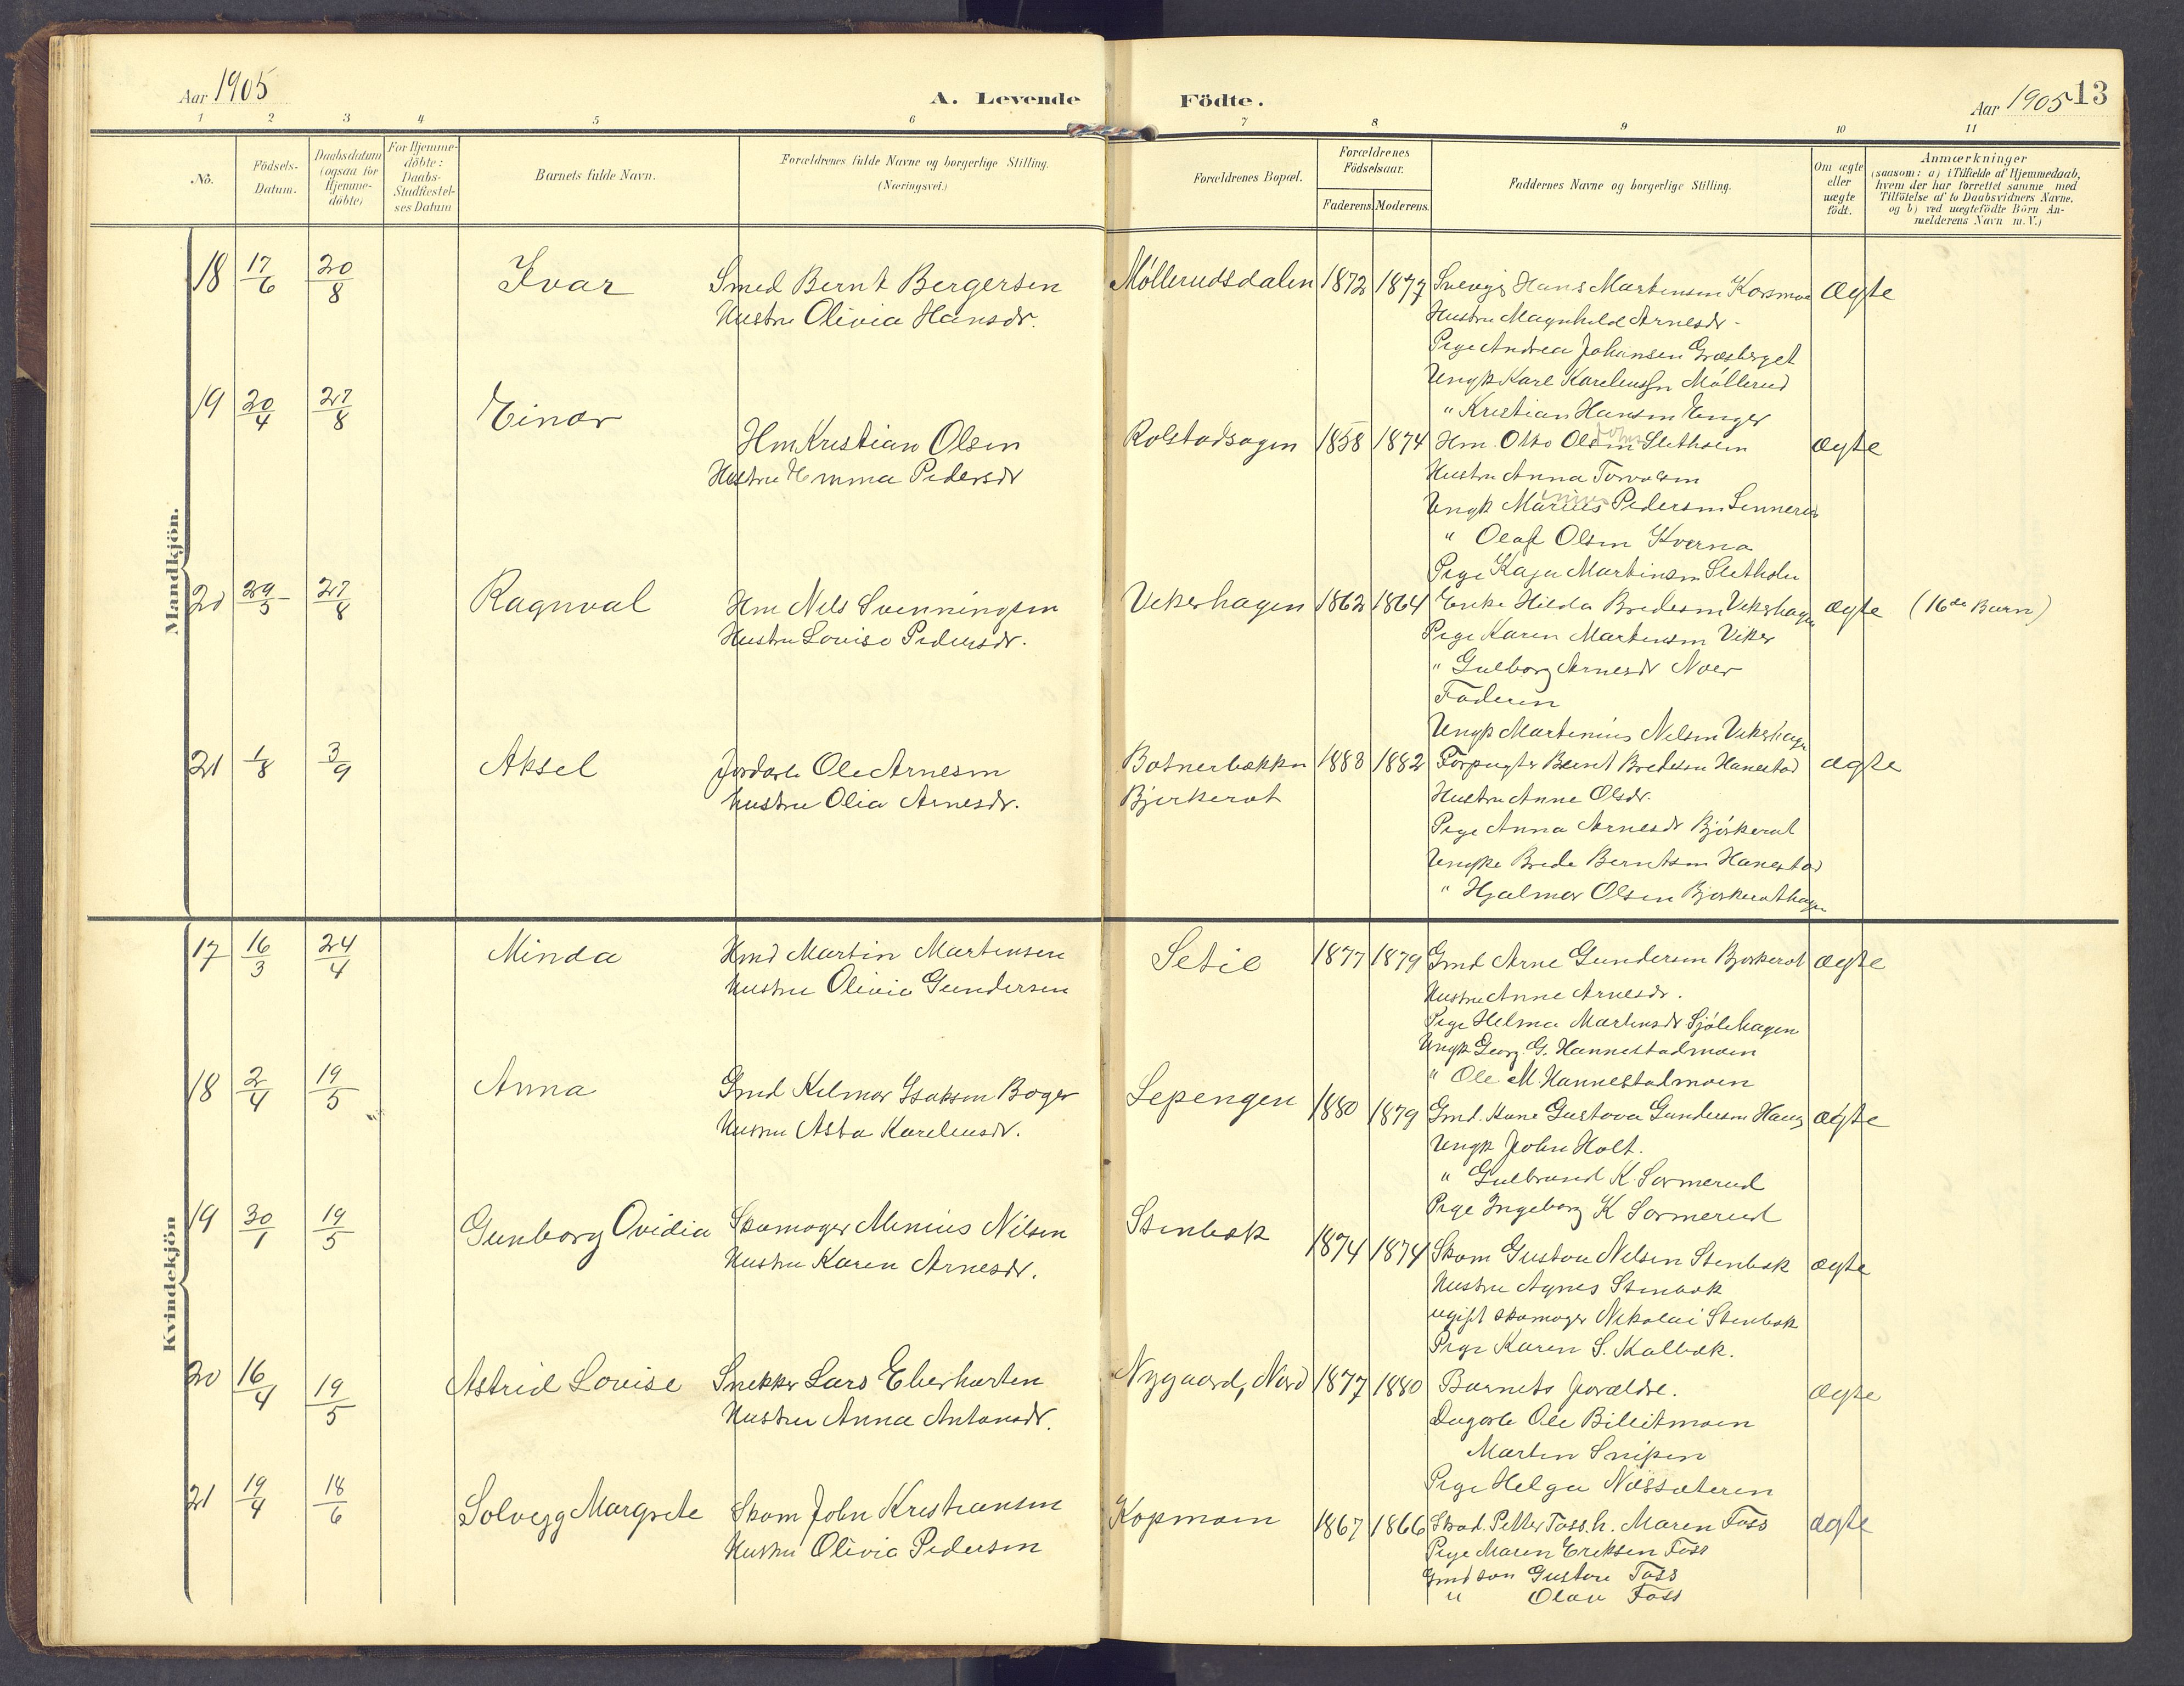 Aar 1905
A. Levende Födte.
Aar 1905 13
1 2 3 4 5 6 7 8 9 10 11
No.
Födsels-Datum.
Daabsdatum (ogsaa for Hjemme-döbte)
For Hjemme-döbte: Daabs-Stadfæstel-ses Datum
Barnets fulde Navn.
Forældrenes fulde Navne og borgerlige Stilling. (Næringsvei.)
Forældrenes Bopæl.
Forældrenes Födselsaar.
Faderens. Moderens.
Faddernes Navne og borgerlige Stilling.
Om ægte eller uægte födt.
Anmærkninger
(saasom: a) i Tilfælde af Hjemmedaab,
hvem der har forrettet samme, med
Tilföielse af to Daabsvidners Navne.
og b) ved uægtefödte Börn An-
melderens Navn m. V.)
Mandkjön.
18 17/6 20/8 Ivar Smed Bernt Bergersen Møllerudsdalen 1872 1877 Hans Martinsen Korsmo Ægte
Hustru Olivia Hansdr. Hustru Magnhild Arnesdr.
Pige Andrea Johansen Græsberget
Ungk Karl Møllerud
" Kristian Hansen Enger
19 20/4 27/8 Einar Hm Kristian Olsen Rolstadsagen 1858 1874 Hm. Otto Olsen Sletholen ægte
Hustru Emma Pedersdr Hustru Anna Torvalsen
Ungk Marius Pedersen
" Olaf Olsen Kverna
Pige Kaja Martinsen Sletholen
20 29/5 27/8 Ragnval Hm Nils Svenningsen Vekerhagen 1862 1864 Enke Hilda Bredesen Vekerhagen ægte (16de Barn)
Hustru Lovise Pedersdr. Pige Karen Martinsen Veker
" Gulborg Arnesdr Noer
Faderen
Ungk Martinius Nilsen Vekerhagen
21 1/8 3/9 Aksel Jordarb Ole Arnesen Botnerbækken 1883 1882 Forpagter Bernt Bredesen Hanestad ægte
Hustru Olia Arnesdr. Bjerkerot Hustru Anne Olsdr.
Pige Anna Arnesdr Bjørkerot
Ungke Brede Berntsen Hanestad
" Hjalmar Olsen Bjørkerothagen
Kvindekjön
17 16/3 24/4 Minda Hmd Martin Martinsen Setil 1877 1879 Gmd Arne Gundersen Bjørkerot ægte
Hustru Olivia Gundersen Hustru Anne Arnesdr.
Pige Helma Martinsdr Sjølihagen
Ungk Georg G. Hannestadmoen
" Ole M. Hannestadmoen
18 2/4 19/5 Anna Gmd Kilmar Isaksen Boger Lepengen 1880 1879 Gmd. Kone Gustava Gundersen Haug ægte
Hustru Asta Karelsdr. Ungk John Holt.
" Gulbrand K. Sormerud
Pige Ingeborg K Sormerud
19 30/1 19/5 Gunborg Ovidia Skomager Minius Nilsen Stenbæk 1874 1874 Skom Gustav Nilsen Stenbæk ægte
Hustru Karen Arnesdr. Hustru Agnes Stenbæk
ugift skomager Nikolai Stenbæk
Pige Karen S. Kalbæk.
20 16/4 19/5 Astrid Lovise Snekker Lars Eberharten Nygaard, Nord 1877 1880 Barnets forældre. ægte
Hustru Anna Antonsdr. Dagarb Ole Billitmoen
Martin Snipen
Pige Helga Næssæteren
21 19/4 18/6 Solveig Margrete Skom John Kristiansen Kopmoen 1867 1866 Petter Foss. h. Maren Foss ægte
Hustru Olivia Pedersen Pige Maren Eriksen Foss
Gmd søn Gustav Foss
" Olav Foss